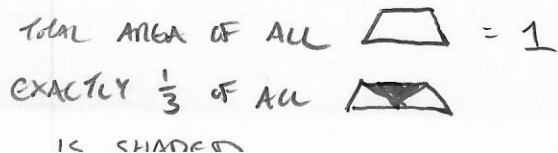 TOTAL AREA OF ALL = 1
EXACTLY 1/3 OF ALL
IS SHADED